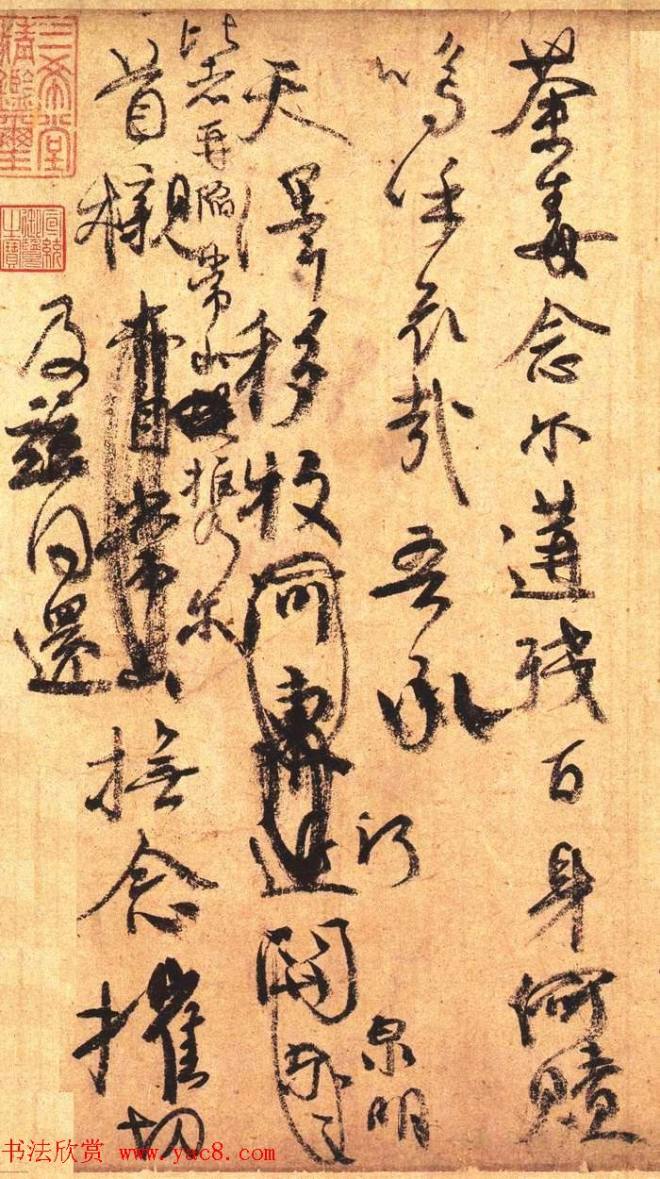 荼毒念尔遘殘百身何贖
嗚呼哀哉吾承
天澤移牧河東近河關
泉明
比者再陷常山携尔
首櫬
常山撫念摧切
及兹同還
三希堂精鑑璽
宣統御覽之寶
书法欣赏 www.yac8.com